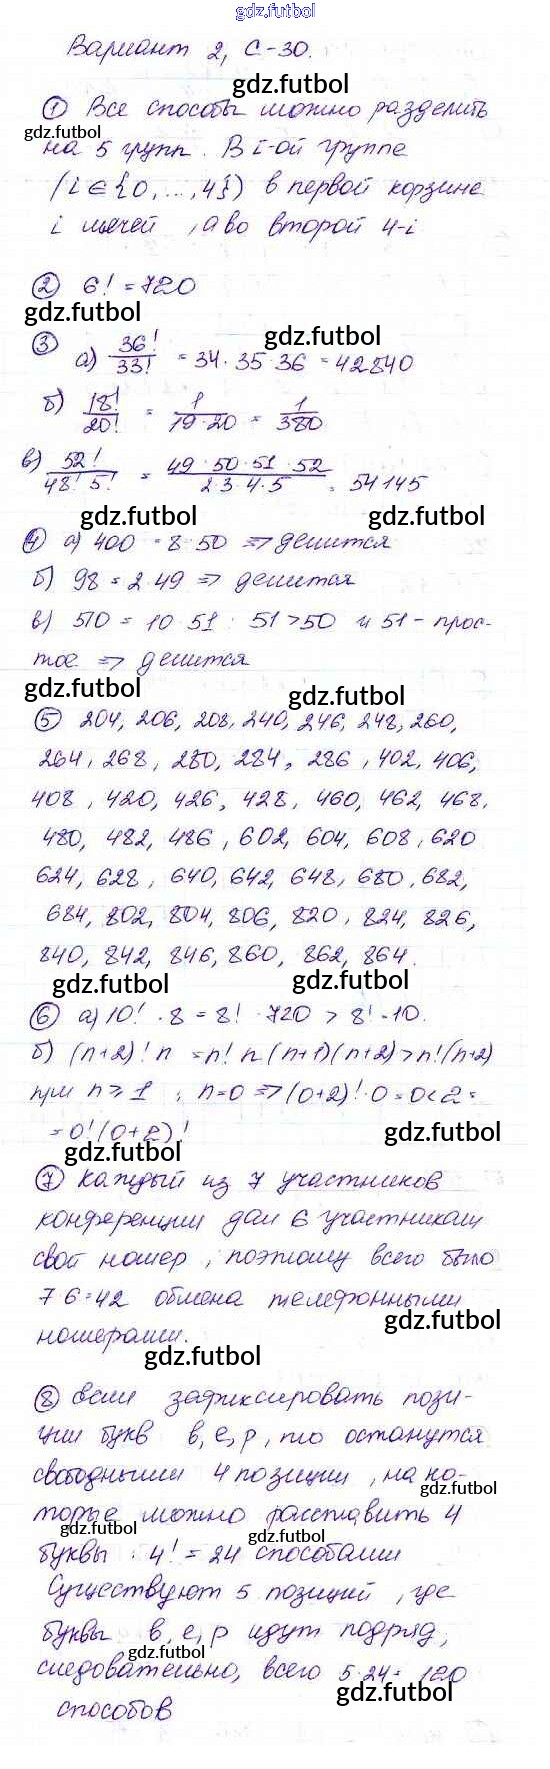 gdz.futbol
Вариант 2, С-30.
gdz.futbol
① Все способы можно разделить
gdz.futbol
на 5 групп. В i-ой группе
(i ∈ {0, ..., 4}) в первой корзине
i мячей, а во второй 4-i
② 6! = 720
gdz.futbol
gdz.futbol
③ а) 36!/33! = 34 · 35 · 36 = 42840
б) 18!/20! = 1/19·20 = 1/380
в) 52!/48! 5! = 49 · 50 · 51 · 52/2·3·4·5 = 54145
gdz.futbol gdz.futbol
④ а) 400 = 8 · 50 => делится
б) 98 = 2 · 49 => делится
в) 510 = 10 · 51 : 51 > 50 и 51 - прос-
тое => делится
gdz.futbol gdz.futbol
⑤ 204, 206, 208, 240, 246, 248, 260,
264, 268, 280, 284, 286, 402, 406,
408, 420, 426, 428, 460, 462, 468,
480, 482, 486, 602, 604, 608, 620
624, 628, 640, 642, 648, 680, 682,
684, 802, 804, 806, 820, 824, 826,
840, 842, 846, 860, 862, 864.
gdz.futbol gdz.futbol
⑥ а) 10! · 8 = 8! · 720 > 8! · 10.
б) (n+2)! n = n! n (n+1)(n+2) > n!(n+2)
при n ≥ 1 ; n=0 => (0+2)! · 0 = 0 < 2 =
= 0! (0+2)!
gdz.futbol
gdz.futbol
⑦ Каждый из 7 участников
конференции дал 6 участникам
свой номер, поэтому всего было
7 · 6 = 42 обмена телефонными
gdz.futbol
номерами.
gdz.futbol
⑧ Если зафиксировать пози-
ции букв в, е, р, то останутся
свободными 4 позиции, на ко-
gdz.futbol
торые можно расставить 4
gdz.futbol gdz.futbol
буквы : 4! = 24 способами
Существуют 5 позиций, где
буквы в, е, р идут подряд,
gdz.futbol
следовательно, всего 5·24 = 120
gdz.futbol
способов